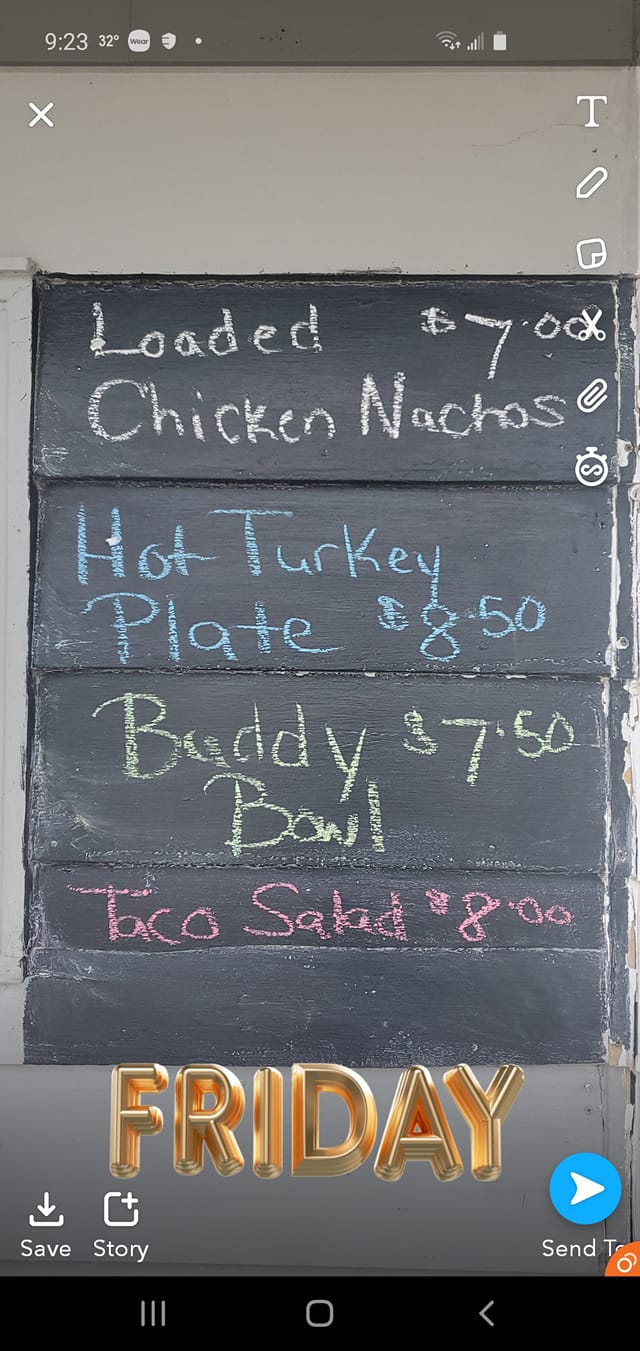 9:23 32° Wear
T
Loaded $7.00
Chicken Nachos
Hot Turkey
Plate $8.50
Buddy $7.50
Bowl
Taco Salad $8.00
FRIDAY
Save Story Send To